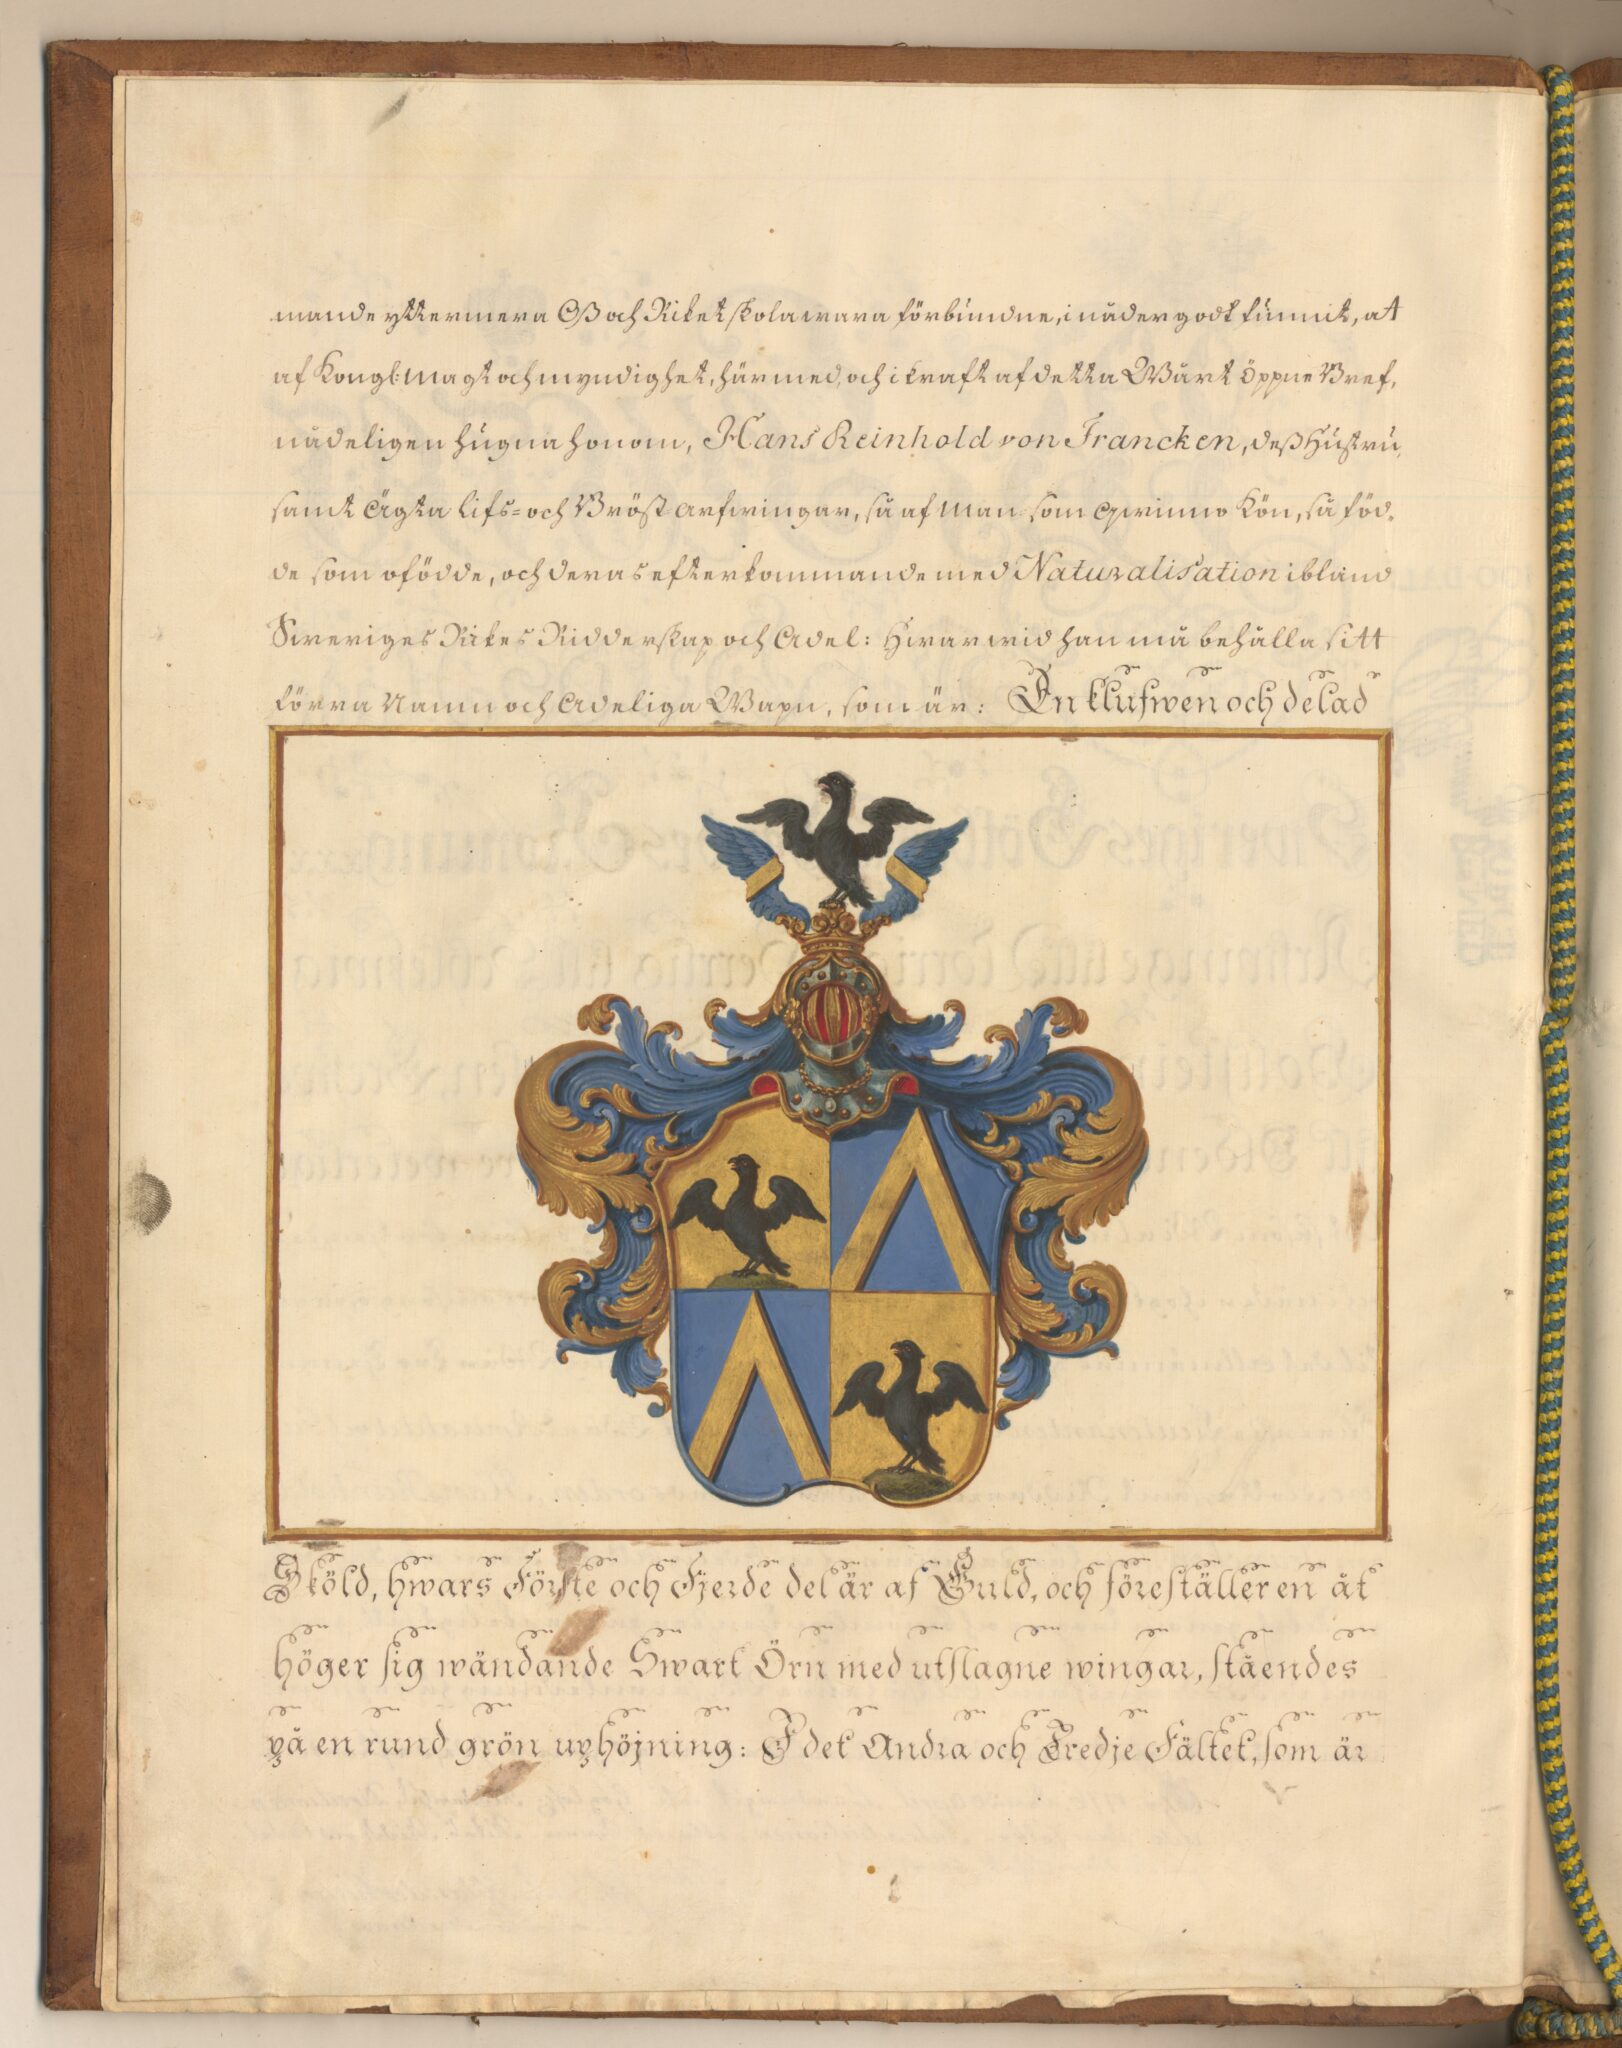 mande yttermera Oß och Riket skola wara förbundne, i nåder godt funnit, at
af Kongl: Magt och myndighet, härmed, och i kraft af detta Wårt öppne Bref,
nådeligen hugna honom, Hans Reinhold von Francken, deß Hustru,
samt Ägta Lifs= och Bröst arfwingar, så af Man- som Qwinno Kön, så föd-
de som ofödde, och deras efterkommande med Naturalisation ibland
Sweriges Rikes Ridderskap och Adel: Hwarwid han må behålla sitt
förra Namn och Adeliga Wapn, som är: En klufwen och delad
Sköld, hwars Förste och Fjerde del är af Guld, och föreställer en åt
höger sig wändande Swart Örn med utslagne wingar, ståendes
på en rund grön uphöjning: I det Andra och Tredje Fältet, som är